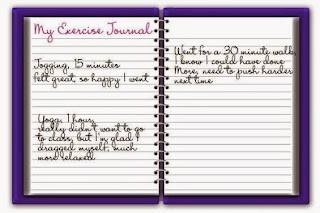 My Exercise Journal
Jogging, 15 minutes
felt great, so happy I went
Yoga, 1 hour,
really didn't want to go
to class, but I'm glad I
dragged myself, much
more relaxed
Went for a 30 minute walk,
I know I could have done
More, need to push harder
next time